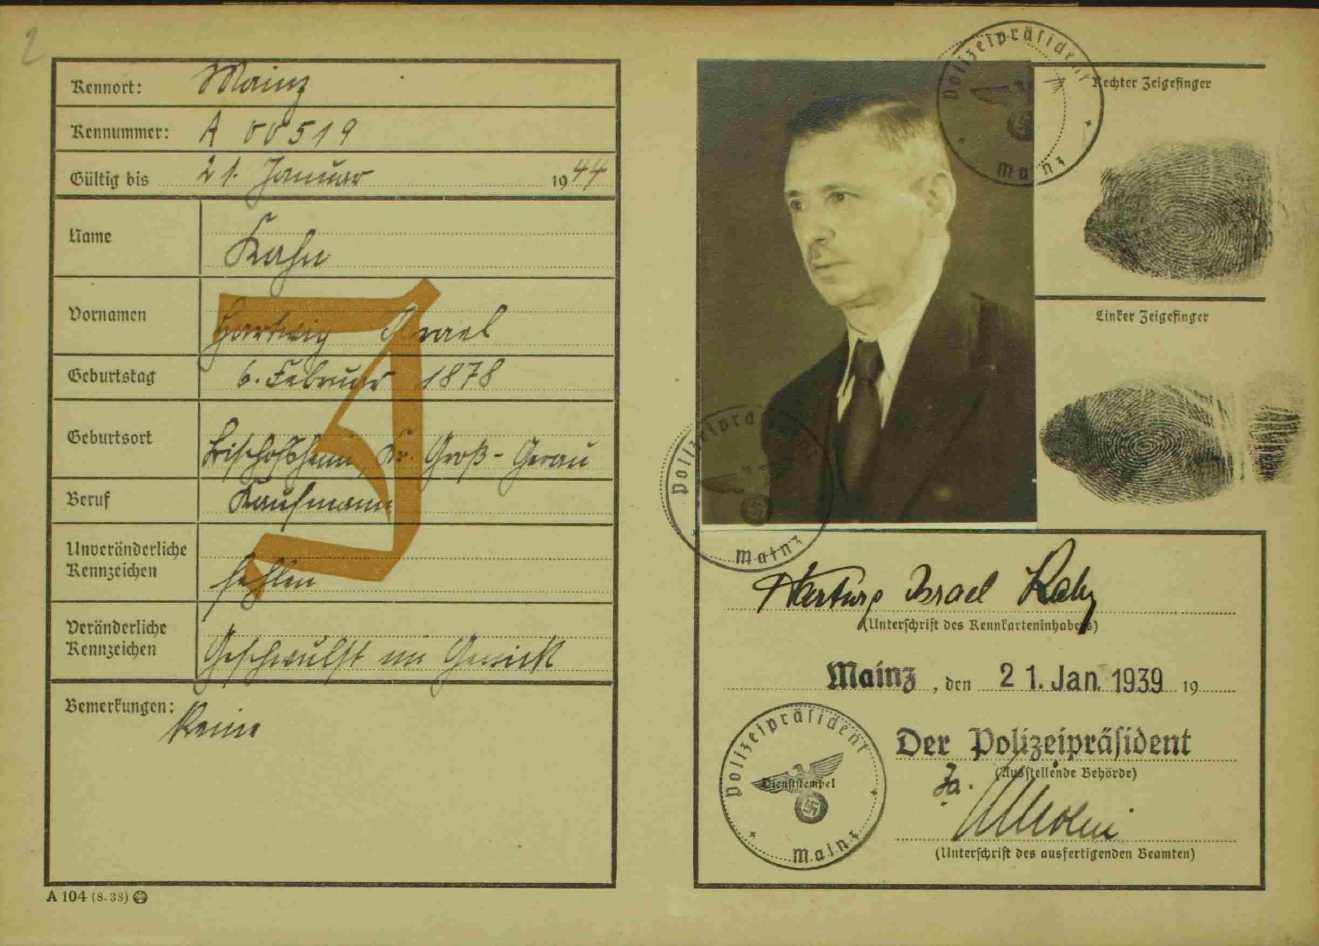 2
Kennort: Mainz
Kennummer: A 00519
Gültig bis 21. Januar 1944
Name Kahn
Vornamen Hartwig Israel
Geburtstag 6. Februar 1878
Geburtsort Bischofsheim, Kr. Groß-Gerau
Beruf Kaufmann
Unveränderliche
Kennzeichen fehlen
Veränderliche
Kennzeichen Geschwulst im Genick
Bemerkungen: Keine
J
A 104 (8. 38)
Polizeipräsident
Mainz
Rechter Zeigefinger
Linker Zeigefinger
Polizeipräsident
Mainz
Hartwig Israel Kahn
(Unterschrift des Kennkarteninhabers)
Mainz, den 21. Jan. 1939 19
Polizeipräsident
Dienststempel
Mainz
Der Polizeipräsident
(Ausstellende Behörde)
(Unterschrift des ausfertigenden Beamten)